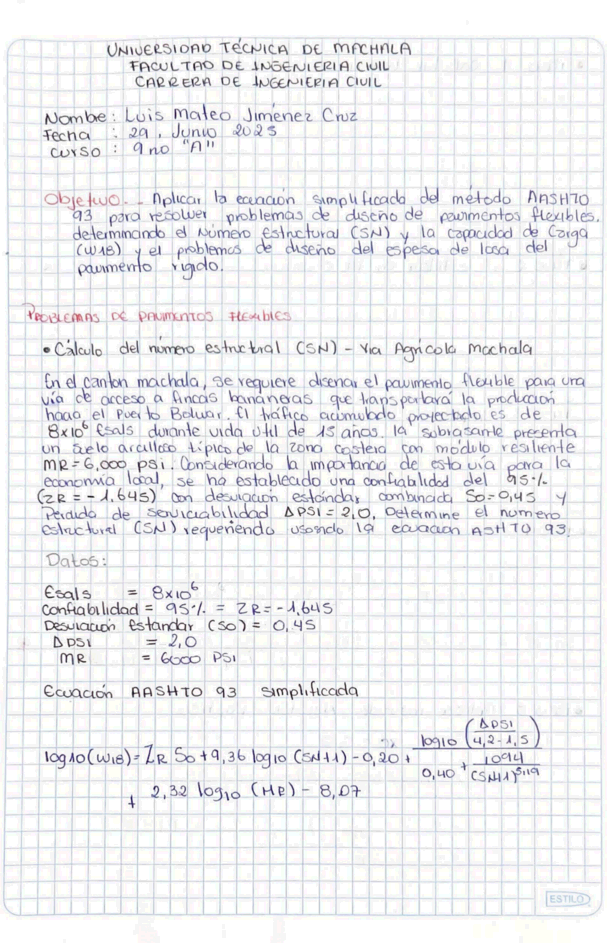 UNIVERSIDAD TÉCNICA DE MACHALA
FACULTAD DE INGENIERIA CIVIL
CARRERA DE INGENIERIA CIVIL
Nombre : Luis Mateo Jiménez Cruz
Fecha : 29, Junio 2025
Curso : 9no "A"
Objetivo. - Aplicar la ecuación simplificada del método AASHTO
93 para resolver problemas de diseño de pavimentos flexibles,
determinando el Número Estructural (SN) y la capacidad de Carga
(W18) y el problemas de diseño del espesa de losa del
pavimento rigido.
PROBLEMAS DE PAVIMENTOS FLEXIBLES
• Cálculo del número estructral (SN) - Via Agrícola Machala
En el canton machala, se requiere disenar el pavimento flexible para una
via de acceso a fincas bananeras que transportará la producción
hacia el Puerto Bolivar. El tráfico acumulado proyectado es de
8x10⁶ Esals durante vida útil de 15 años. la subrasante presenta
un suelo arcilloso típico de la zona costera con módulo resiliente
MR=6,000 psi. Considerando la importancia de esta vía para la
economía local, se ha establecido una confiabilidad del 95%
(ZR = -1,645) con desviación estándar combinada So=0,45 y
Perdida de serviciabilidad ΔPSI=2,0, Determine el numero
estructural (SN) requeriendo usando la ecuacion ASHTO 93.
Datos:
Esals = 8x10⁶
Confiabilidad = 95% = ZR=-1,645
Desviación Estandar (SO) = 0,45
Δ PSI = 2,0
MR = 6000 PSI
Ecuación AASHTO 93 simplificada
log10(W18)= ZR So+9,36 log10 (SN+1)-0,20+ log10 (ΔPSI / 4,2-1,5) / 0,40 + 1094 / (SN+1)^5,19
+ 2,32 log10 (MR) - 8,07
ESTILO